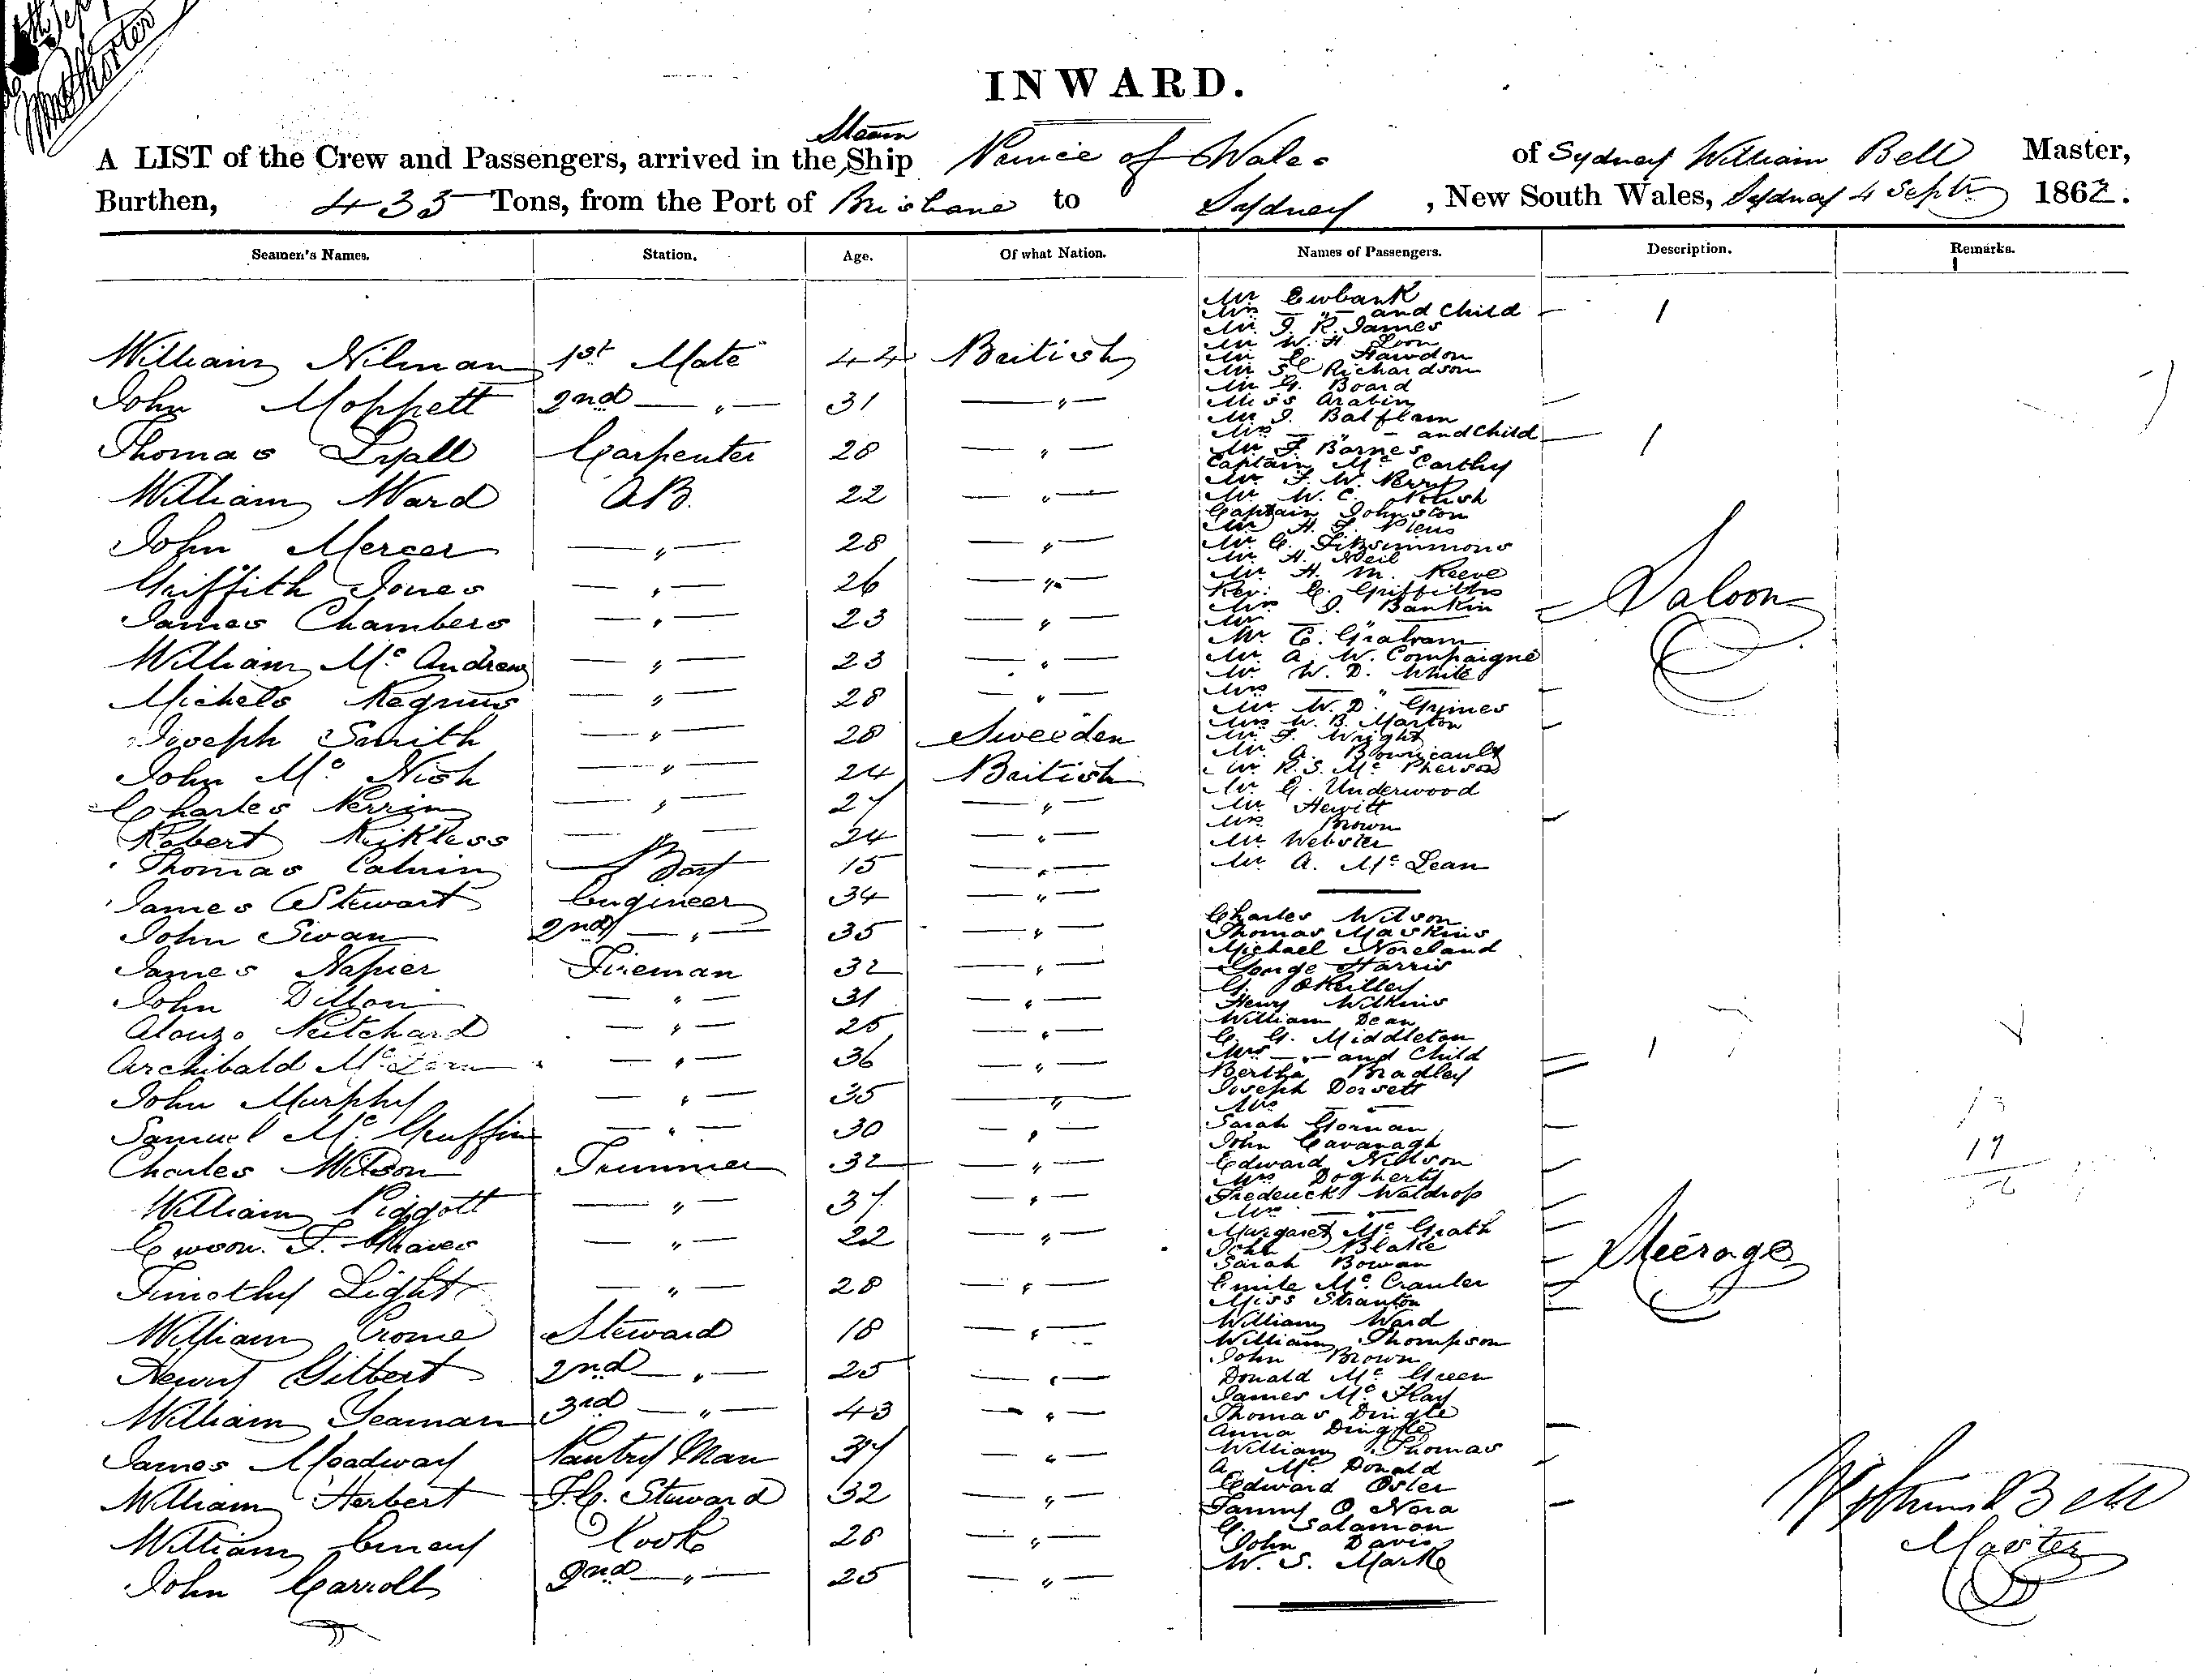 INWARD.
Steam
A LIST of the Crew and Passengers, arrived in the Ship Prince of Wales of Sydney William Bell Master,
Burthen, 433 Tons, from the Port of Brisbane to Sydney , New South Wales, Sydney 4 Septr 1862.
Seamen's Names. Station. Age. Of what Nation. Names of Passengers. Description. Remarks.
William Nilman 1st Mate 44 British
John Moppett 2nd — " — 31 — " —
Thomas Lyall Carpenter 28 — " —
William Ward AB. 22 — " —
John Mercer — " — 28 — " —
Griffith Jones — " — 26 — " —
James Chambers — " — 23 — " —
William Mc Andrew — " — 23 — " —
Michels — " — 28 — " —
Joseph Smith — " — 28 Sweeden
John Mc Nish — " — 24 British
Charles Perrin — " — 27 — " —
Robert Kirkless — " — 24 — " —
Thomas Calvin Boy 15 — " —
James Stewart Engineer 34 — " —
John Swan 2nd — " — 35 — " —
James Napier Fireman 32 — " —
John Dillon — " — 31 — " —
Alonzo Pritchard — " — 25 — " —
Archibald Mc — " — 36 — " —
John Murphy — " — 35 — " —
Samuel Mc Guffin — " — 30 — " —
Charles Wilson Trimmer 32 — " —
William Piggott — " — 37 — " —
— " — 22 — " —
Timothy Light — " — 28 — " —
William Crome Steward 18 — " —
Henry Gilbert 2nd — " — 25 — " —
William Seaman 3rd — " — 43 — " —
James Meadway Pantry Man 37 — " —
William Herbert F.C. Steward 32 — " —
William Emery Cook 26 — " —
John Carroll 2nd — " — 25 — " —
Mr Ewbank
Mrs — " — and Child 1
Mr J. R. James
Mr W. H.
Mr C. Hawdon
Mr S. Richardson
Mr G. Board
Miss Arabin
Mr J. Balflam
Mrs — " — and Child 1
Mr F. Barnes
Captain Mc Carthy
Mr F. W. Perry
Mr W. C.
Captain Johnston
Mr H. F. Plews
Mr C. Fitzsimmons
Mr H. Neil
Mr H. M. Reeve
Rev: E. Griffiths
Mrs J. Bankin
Mr
Mr C. Graham
Mr A. W. Compaigné
Mr W. D. White
Mrs — " —
Mr W. D. Grimes
Mrs W. B. Marton
Mr F. Wright
Mr A. Bowricault
Mr R. S. Mc Pherson
Mr G. Underwood
Mr Hewitt
Mrs Brown
Mr Webster
Mr A. Mc Lean
Saloon
Charles Wilson
Thomas Maskins
Michael Noreland
George Harris
G. OReilley
Henry Wilkins
William Dean
C. G. Middleton
Mrs — " — and Child 1
Bertha Bradley
Joseph Dorsett
Mrs — " —
Sarah Gorman
John Cavanagh
Edward Nillson
Mrs Dogherty
Frederick Waldrop
Mrs — " —
Margaret Mc Grath
John Blake
Sarah Bowan
Emile Mc Crauler
Miss Stranton
William Ward
William Thompson
John Brown
Donald Mc Green
James Mc Kay
Thomas Dingle
Anna Dingle
William Thomas
A. Mc Donald
Edward Osler
Fanny O Nora
G. Salamon
John Davis
W. S. Marke
Steerage
19
William Bell
Master